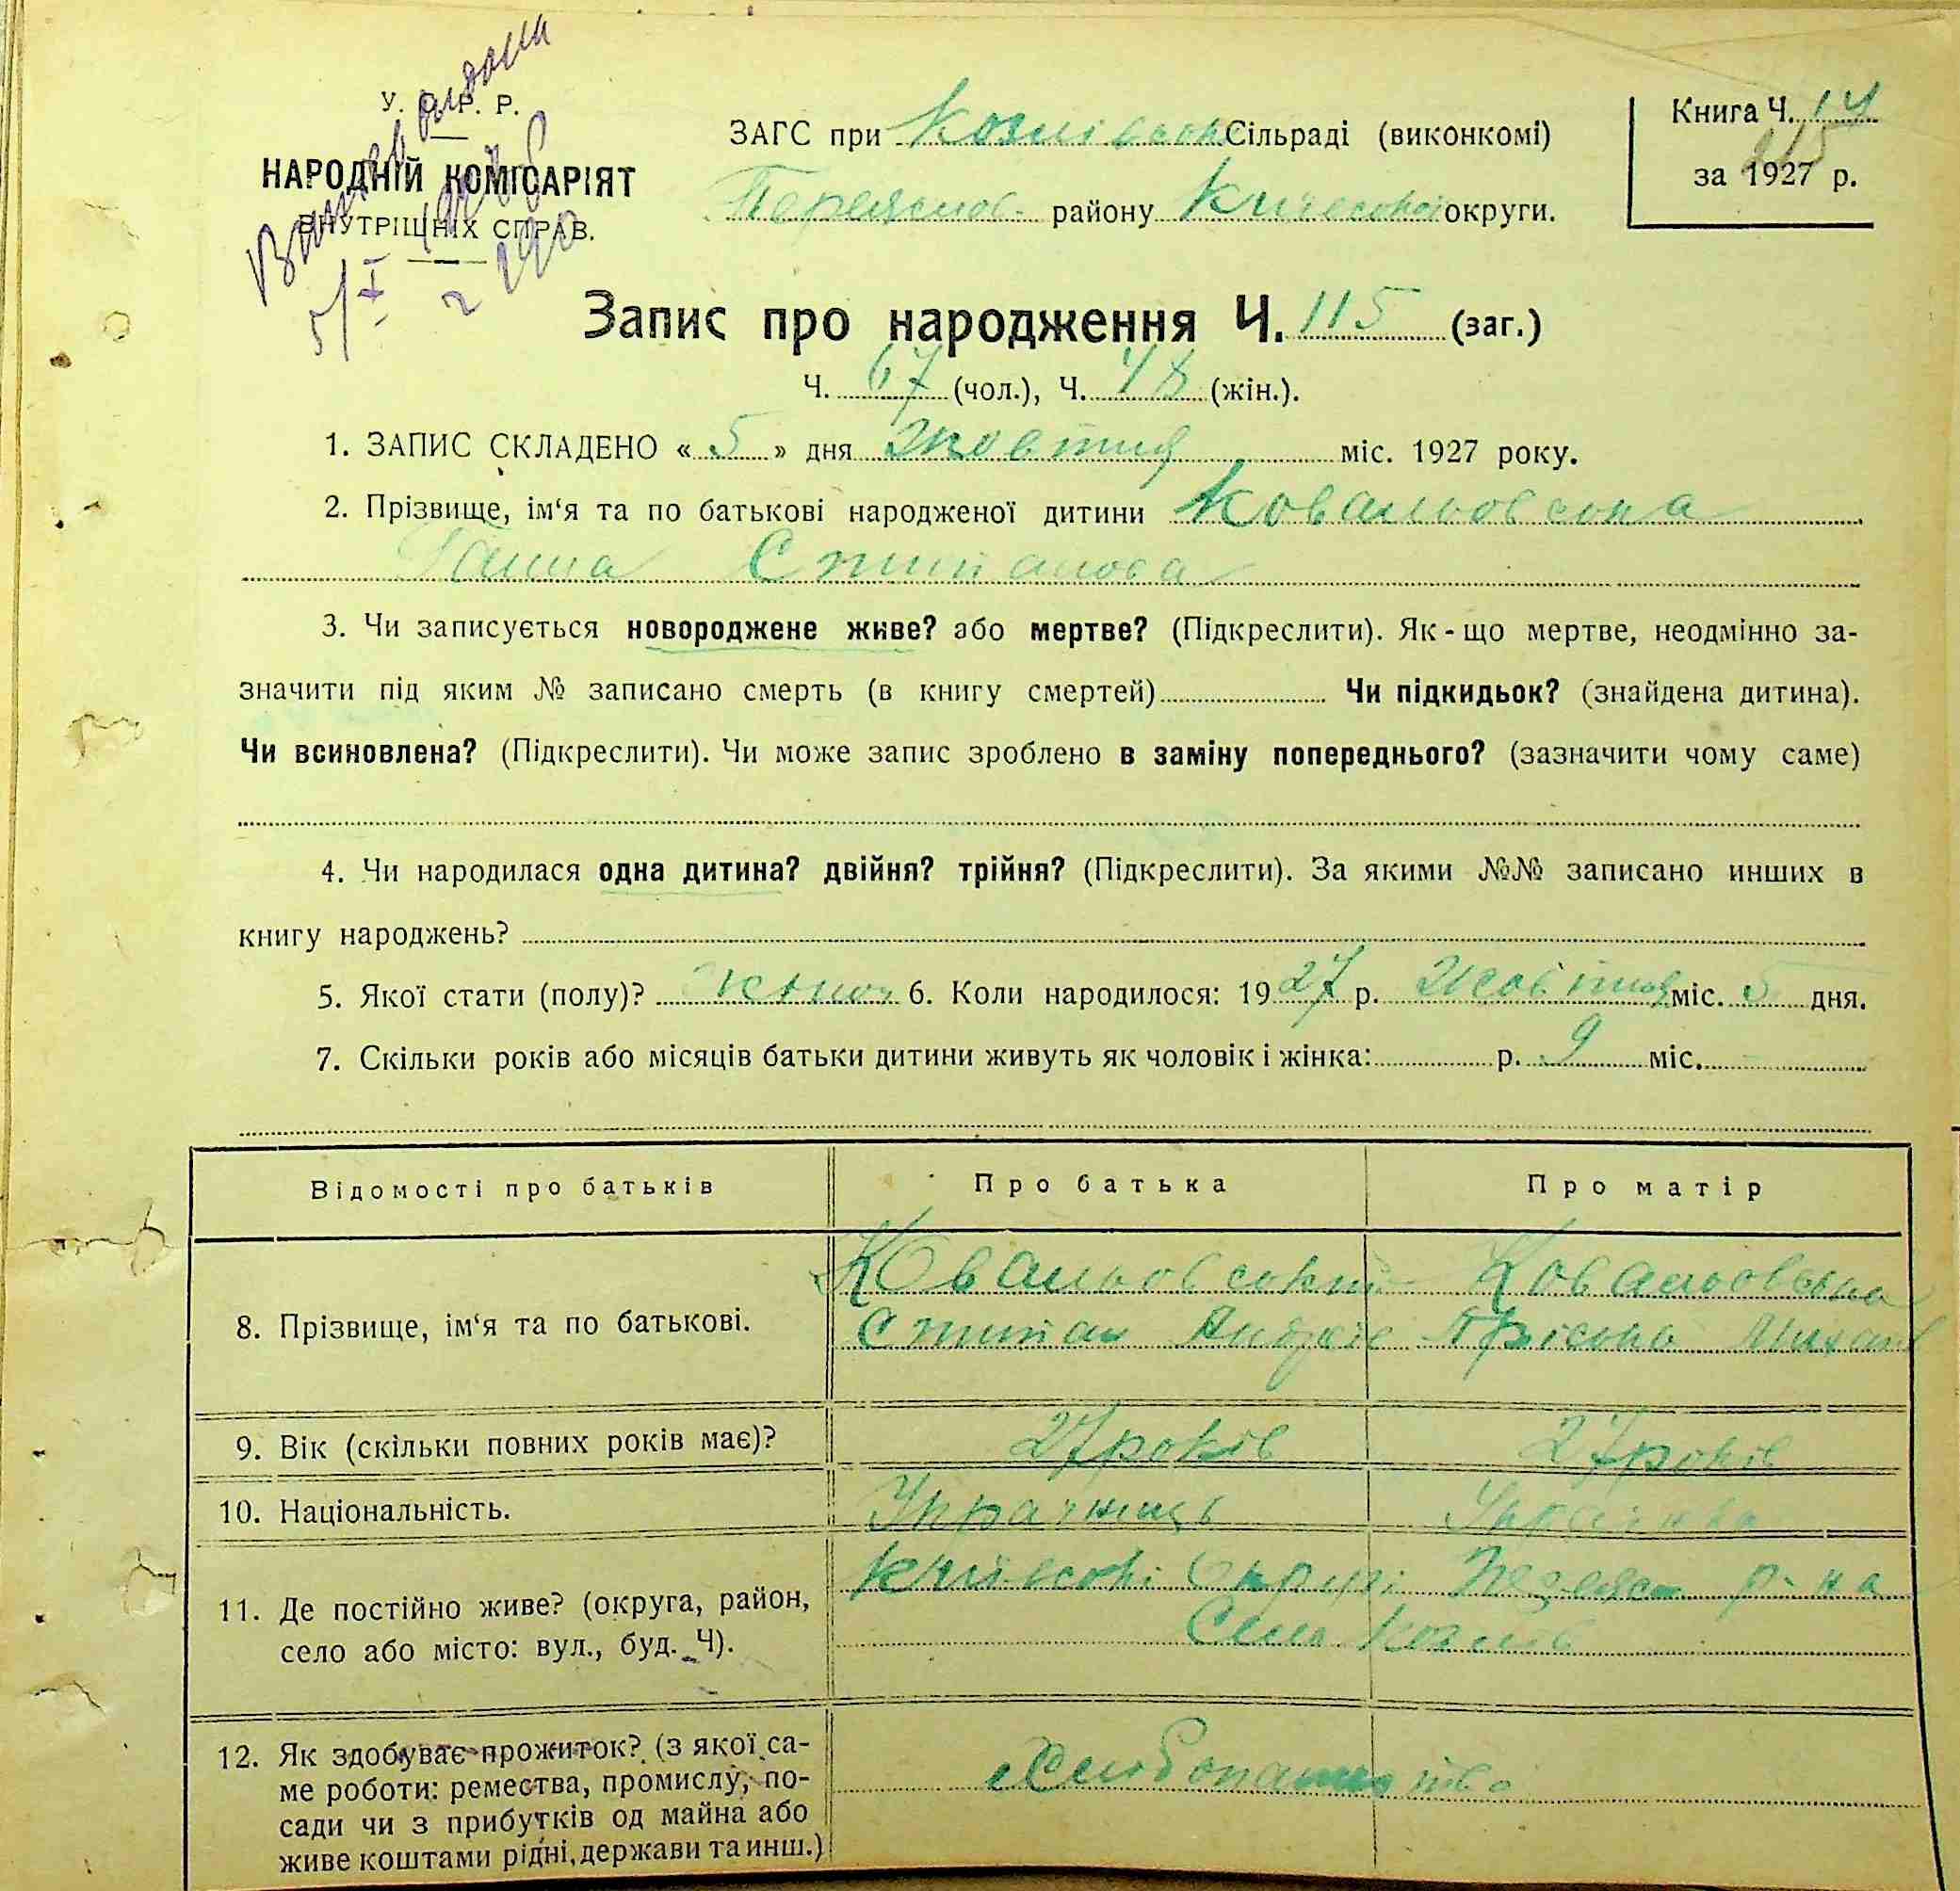 У. С. Р. Р.
НАРОДНІЙ КОМІСАРІЯТ
ВНУТРІШНІХ СПРАВ.
5/I
ЗАГС при Козлівськ Сільраді (виконкомі)
Переяслов. району Київської округи.
Книга Ч. 14
215
за 1927 р.
Запис про народження Ч. 115 (заг.)
Ч. 67 (чол.), Ч. 48 (жін.).
1. ЗАПИС СКЛАДЕНО « 5 » дня Жовтня міс. 1927 року.
2. Прізвище, ім‘я та по батькові народженої дитини Ковальовська
Ганна Степанова
3. Чи записується новороджене живе? або мертве? (Підкреслити). Як-що мертве, неодмінно за-
значити під яким № записано смерть (в книгу смертей) Чи підкидьок? (знайдена дитина).
Чи всиновлена? (Підкреслити). Чи може запис зроблено в заміну попереднього? (зазначити чому саме)
4. Чи народилася одна дитина? двійня? трійня? (Підкреслити). За якими №№ записано инших в
книгу народжень?
5. Якої стати (полу)? жіноч 6. Коли народилося: 1927 р. Жовтня міс. 5 дня.
7. Скільки років або місяців батьки дитини живуть як чоловік і жінка: р. 9 міс.
Відомості про батьків Про батька Про матір
8. Прізвище, ім‘я та по батькові. Ковальовський Ковальовська
Степан Андріє Пріська Михайл
9. Вік (скільки повних років має)? 27 років 27 років
10. Національність. Українець Українка
11. Де постійно живе? (округа, район,
село або місто: вул., буд. Ч). Київської Округи Переясл р-на
Село Козлов
12. Як здобуває прожиток? (з якої са-
ме роботи: ремества, промислу, по-
сади чи з прибутків од майна або
живе коштами рідні, держави та инш.) Хлібопашество